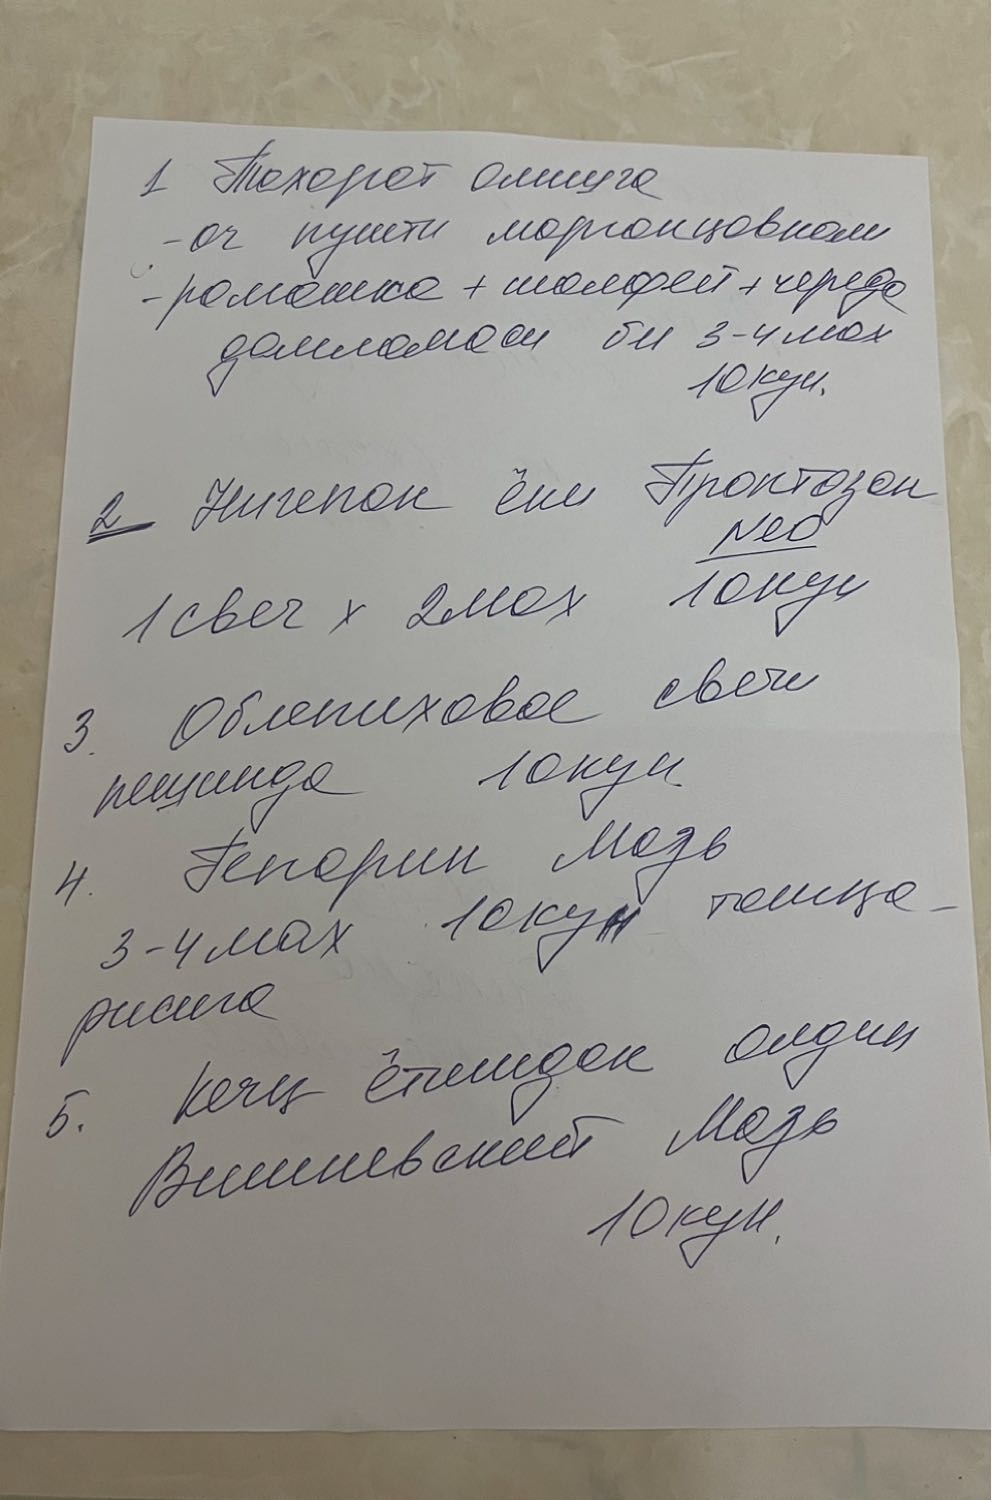 1 Тахорат олишга
- оч пушти марганцовкали
- ромашка + шалфей + череда
дамламаси би 3-4 мах
10 кун.
2 Нигепан ёки Проктозан
Neo
1 свеч х 2 мах 10 кун
3. Облепиховое свечи
пешинда 10 кун
4. Гепарин мазь
3-4 мах 10 кун ташқа-
рисига
5. Кечқ ётишдан олдин
Вишневский мазь
10 кун.